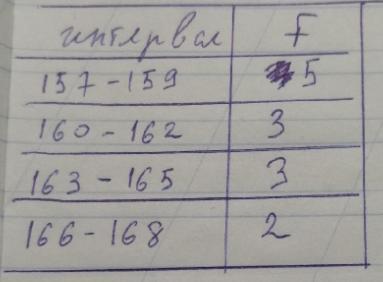 интервал F
157-159 5
160-162 3
163-165 3
166-168 2